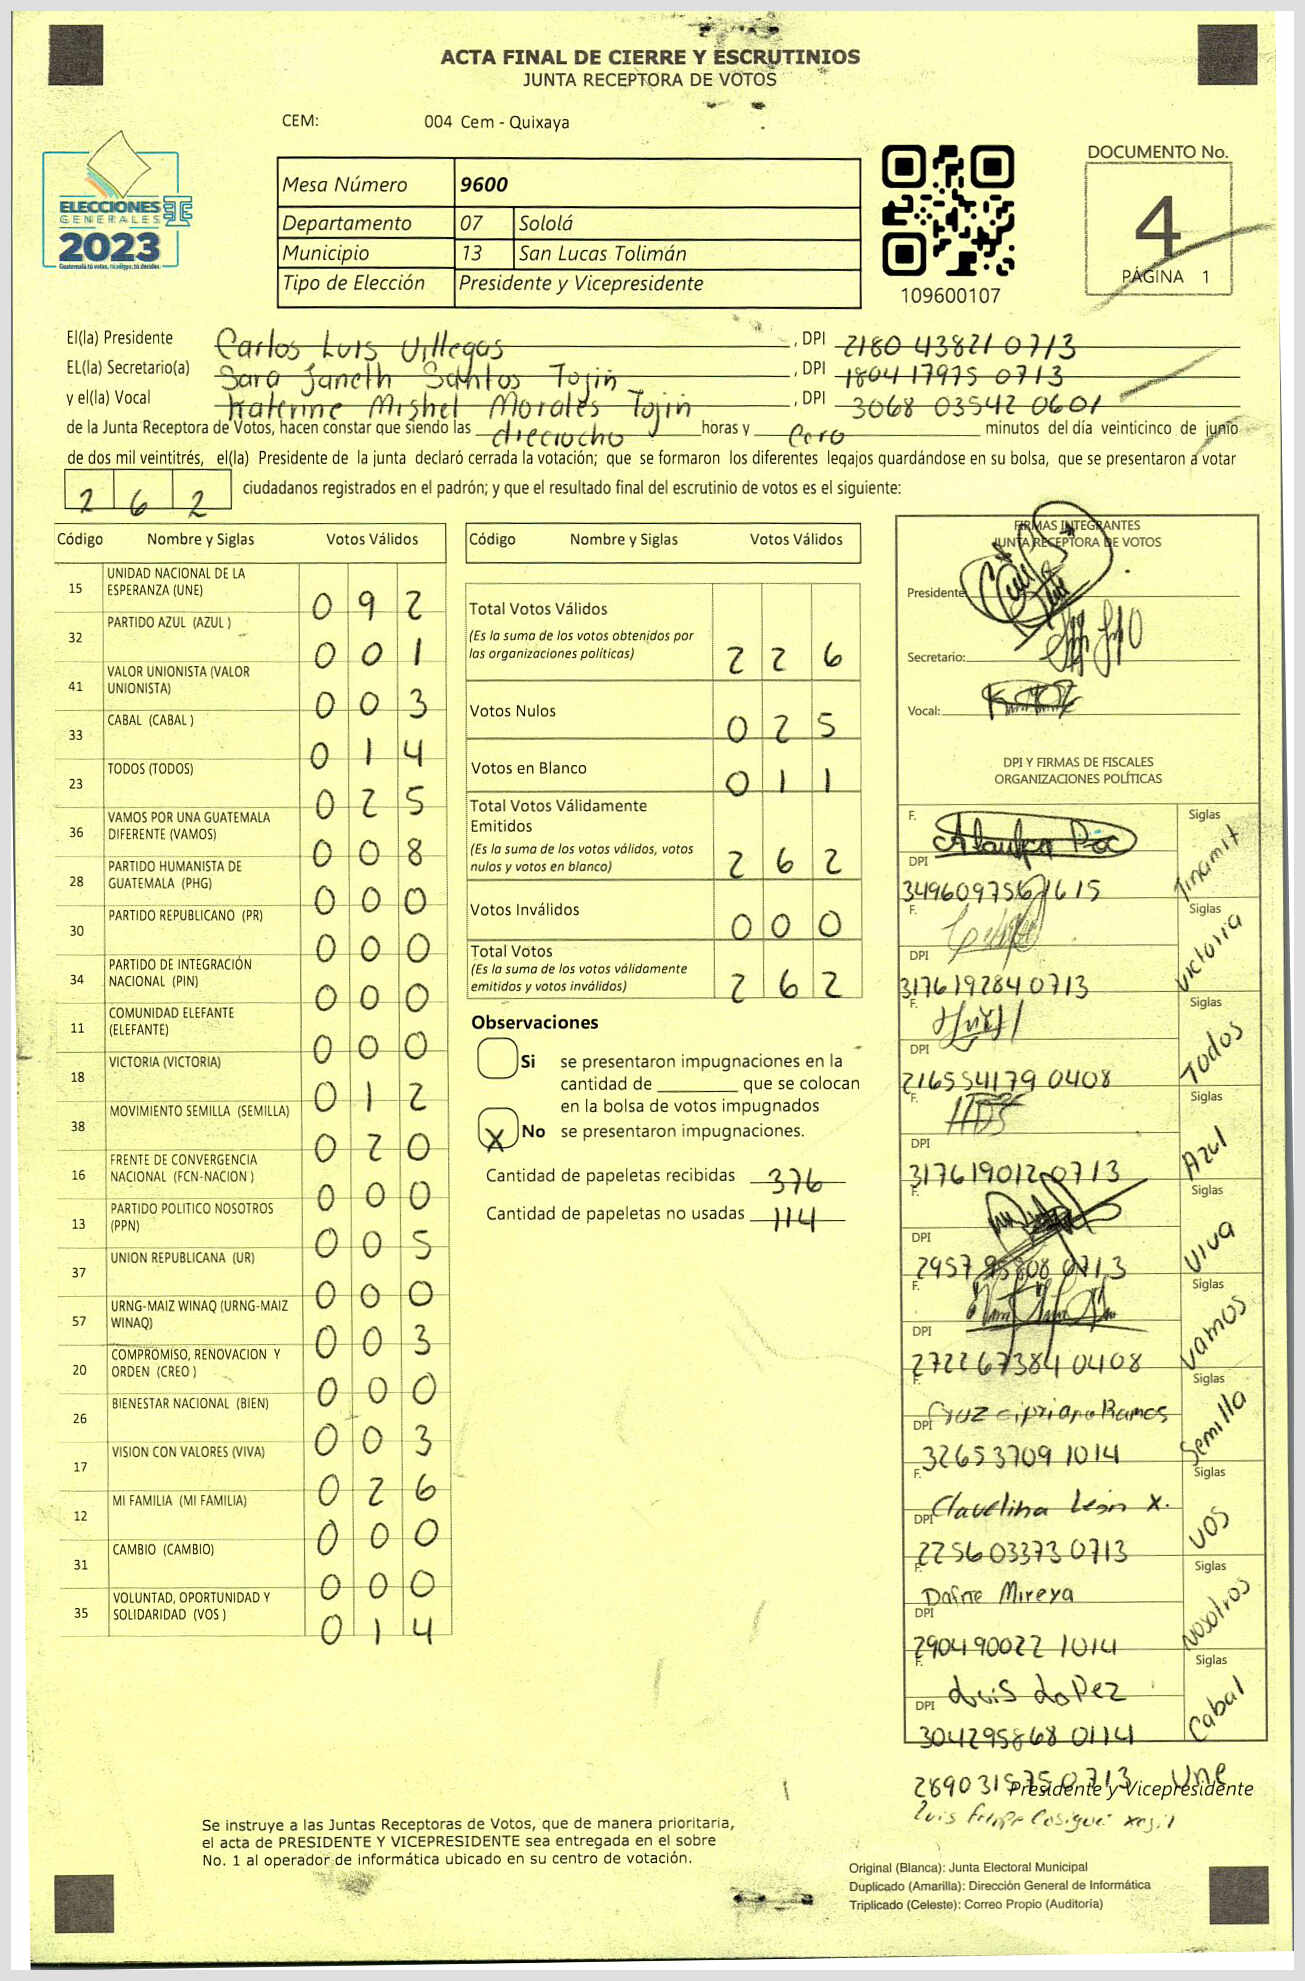 ACTA FINAL DE CIERRE Y ESCRUTINIOS
JUNTA RECEPTORA DE VOTOS
CEM: 004 Cem - Quixaya
ELECCIONES
GENERALES
2023
Guatemala tú votas, tú eliges, tú decides.
Mesa Número 9600
Departamento 07 Sololá
Municipio 13 San Lucas Tolimán
Tipo de Elección Presidente y Vicepresidente
109600107
DOCUMENTO No.
4
PÁGINA 1
El(la) Presidente Carlos Luis Villegas , DPI 2180 43821 0713
EL(la) Secretario(a) Sara Janeth Santos Tojin , DPI 1804 17975 0713
y el(la) Vocal Katerine Mishel Morales Tojin , DPI 3068 03542 0601
de la Junta Receptora de Votos, hacen constar que siendo las dieciocho horas y Cero minutos del día veinticinco de junio
de dos mil veintitrés, el(la) Presidente de la junta declaró cerrada la votación; que se formaron los diferentes legajos quardándose en su bolsa, que se presentaron a votar
2 6 2 ciudadanos registrados en el padrón; y que el resultado final del escrutinio de votos es el siguiente:
Código Nombre y Siglas Votos Válidos
15 UNIDAD NACIONAL DE LA ESPERANZA (UNE) 0 9 2
32 PARTIDO AZUL (AZUL ) 0 0 1
41 VALOR UNIONISTA (VALOR UNIONISTA) 0 0 3
33 CABAL (CABAL ) 0 1 4
23 TODOS (TODOS) 0 2 5
36 VAMOS POR UNA GUATEMALA DIFERENTE (VAMOS) 0 0 8
28 PARTIDO HUMANISTA DE GUATEMALA (PHG) 0 0 0
30 PARTIDO REPUBLICANO (PR) 0 0 0
34 PARTIDO DE INTEGRACIÓN NACIONAL (PIN) 0 0 0
11 COMUNIDAD ELEFANTE (ELEFANTE) 0 0 0
18 VICTORIA (VICTORIA) 0 1 2
38 MOVIMIENTO SEMILLA (SEMILLA) 0 2 0
16 FRENTE DE CONVERGENCIA NACIONAL (FCN-NACION ) 0 0 0
13 PARTIDO POLITICO NOSOTROS (PPN) 0 0 5
37 UNION REPUBLICANA (UR) 0 0 0
57 URNG-MAIZ WINAQ (URNG-MAIZ WINAQ) 0 0 3
20 COMPROMISO, RENOVACION Y ORDEN (CREO ) 0 0 0
26 BIENESTAR NACIONAL (BIEN) 0 0 3
17 VISION CON VALORES (VIVA) 0 2 6
12 MI FAMILIA (MI FAMILIA) 0 0 0
31 CAMBIO (CAMBIO) 0 0 0
35 VOLUNTAD, OPORTUNIDAD Y SOLIDARIDAD (VOS ) 0 1 4
Código Nombre y Siglas Votos Válidos
Total Votos Válidos
(Es la suma de los votos obtenidos por
las organizaciones políticas) 2 2 6
Votos Nulos 0 2 5
Votos en Blanco 0 1 1
Total Votos Válidamente
Emitidos
(Es la suma de los votos válidos, votos
nulos y votos en blanco) 2 6 2
Votos Inválidos 0 0 0
Total Votos
(Es la suma de los votos válidamente
emitidos y votos inválidos) 2 6 2
Observaciones
Si se presentaron impugnaciones en la
cantidad de ________ que se colocan
en la bolsa de votos impugnados
X No se presentaron impugnaciones.
Cantidad de papeletas recibidas 376
Cantidad de papeletas no usadas 114
FIRMAS INTEGRANTES
JUNTA RECEPTORA DE VOTOS
Presidente
Secretario:
Vocal:
DPI Y FIRMAS DE FISCALES
ORGANIZACIONES POLÍTICAS
F. Siglas
DPI Tinamit
F. Siglas
DPI 317619284 0713 Victoria
F. Siglas
DPI 216554179 0408 Todos
F. Siglas
DPI 317619012 0713 Azul
F. Siglas
DPI 2957 95808 0713 Viva
F. Siglas
DPI 272267384 0408 Vamos
F. Cruz Cipriano Ramos Siglas
DPI 326537091014 Semilla
F. Clavelina León X. Siglas
DPI 225603373 0713 VOS
F. Dafne Mireya Siglas
DPI 290490022 1014 Nosotros
F. Luis Lopez Siglas
DPI 304295868 0114 Cabal
289031575 0713 Une
Presidente y Vicepresidente
Luis Felipe
Se instruye a las Juntas Receptoras de Votos, que de manera prioritaria,
el acta de PRESIDENTE Y VICEPRESIDENTE sea entregada en el sobre
No. 1 al operador de informática ubicado en su centro de votación.
Original (Blanca): Junta Electoral Municipal
Duplicado (Amarilla): Dirección General de Informática
Triplicado (Celeste): Correo Propio (Auditoría)